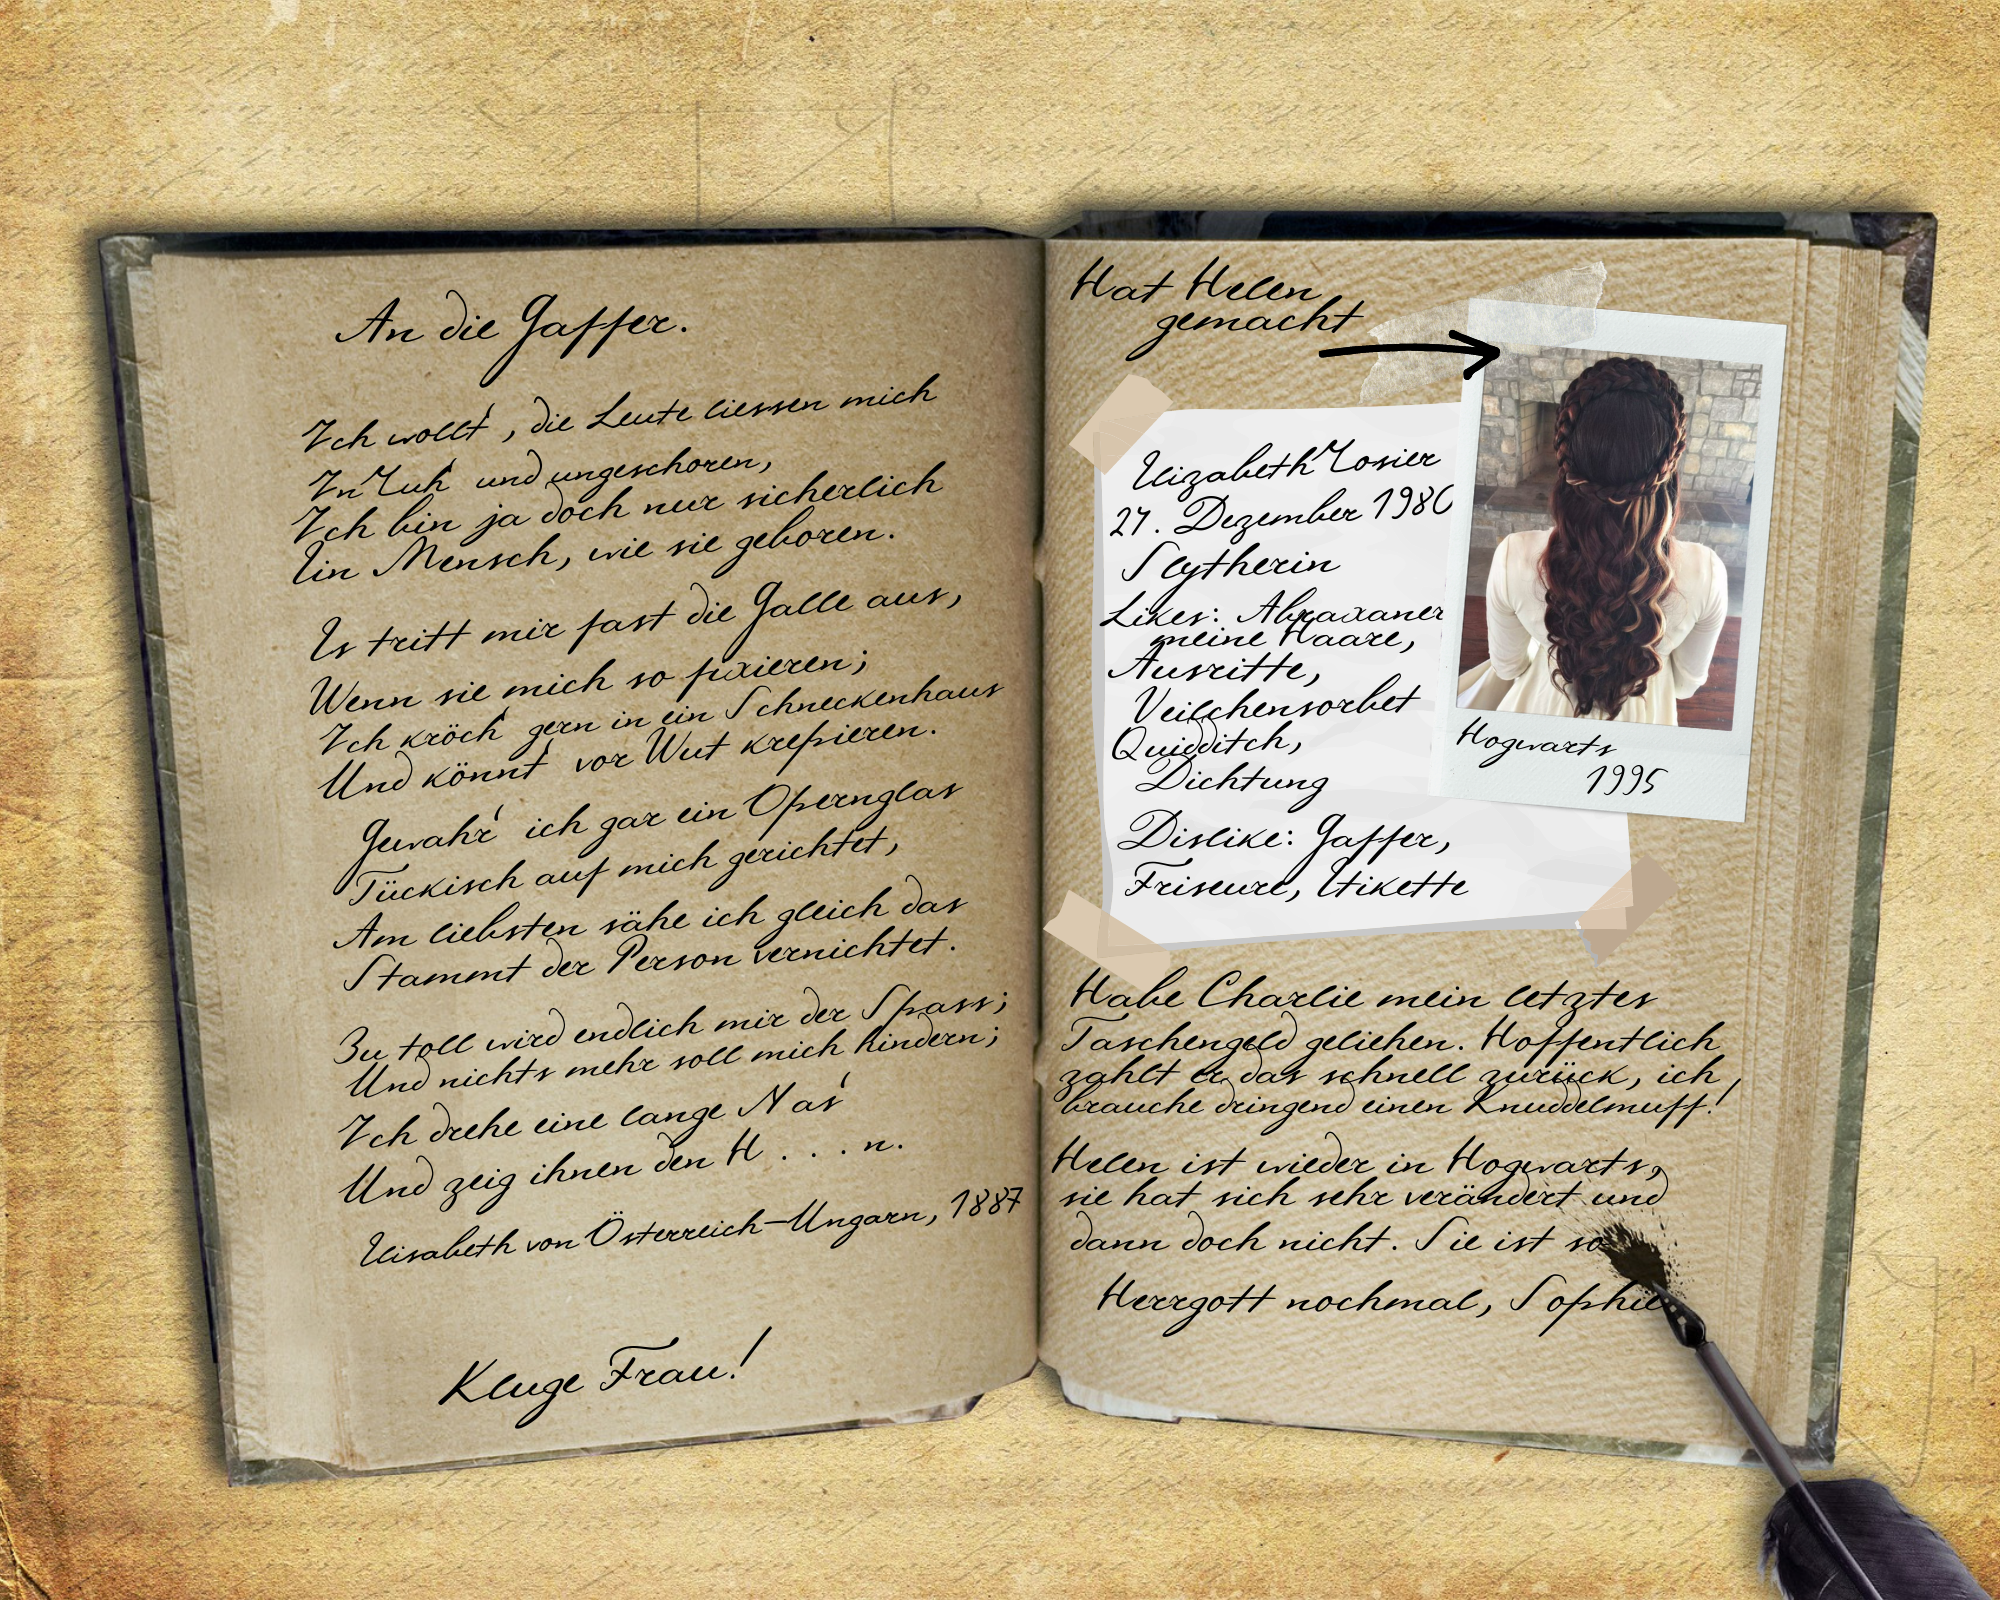 An die Gaffer.
Ich wollt', die Leute liessen mich
In Ruh' und ungeschoren,
Ich bin ja doch nur sicherlich
Ein Mensch, wie sie geboren.
Es tritt mir fast die Galle aus,
Wenn sie mich so fixieren;
Ich kröch' gern in ein Schneckenhaus
Und könnt' vor Wut krepieren.
Gewahr' ich gar ein Opernglas
Tückisch auf mich gerichtet,
Am liebsten sähe ich gleich das
Stammt der Person vernichtet.
Zu toll wird endlich mir der Spass;
Und nichts mehr soll mich hindern;
Ich drehe eine lange Nas'
Und zeig ihnen den H . . . n.
Elisabeth von Österreich-Ungarn, 1887
Kluge Frau!
Hat Helen
gemacht
Elizabeth Rosier
27. Dezember 1980
Slytherin
Likes: Abraxaner
meine Haare,
Ausritte,
Veilchensorbet
Quidditch,
Dichtung
Dislike: Gaffer,
Friseure, Etikette
Hogwarts
1995
Habe Charlie mein letztes
Taschengeld geliehen. Hoffentlich
zahlt er das schnell zurück, ich
brauche dringend einen Knuddelmuff!
Helen ist wieder in Hogwarts,
sie hat sich sehr verändert und
dann doch nicht. Sie ist so
Herrgott nochmal, Sophie